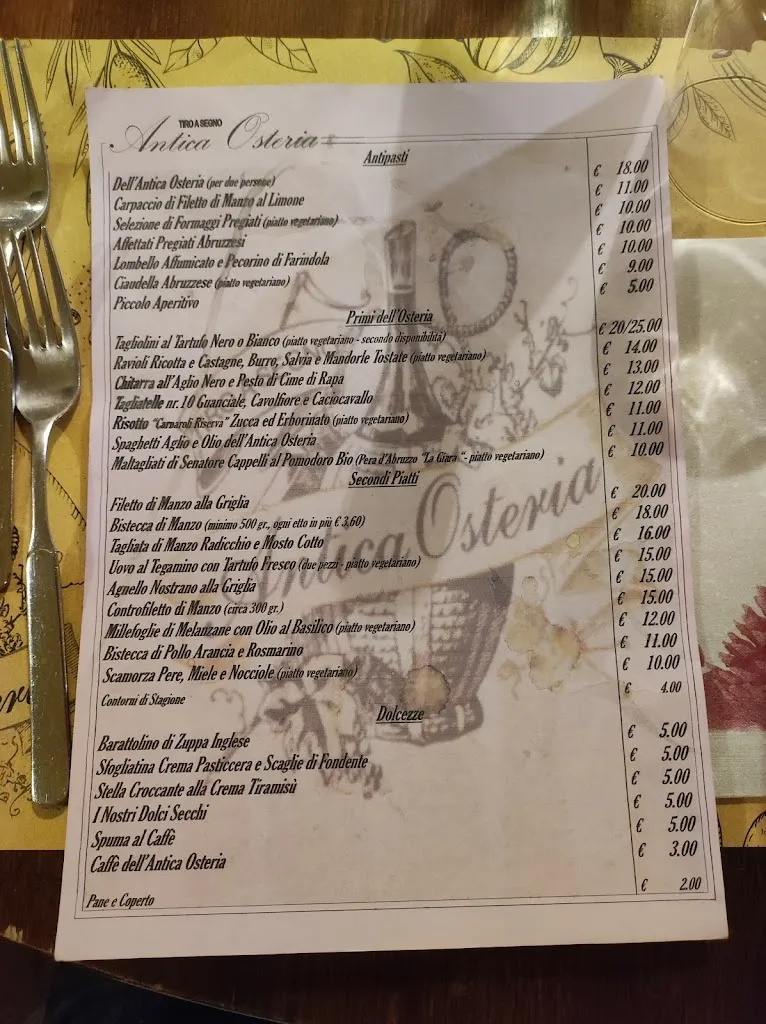 TIRO A SEGNO
Antica Osteria
Antipasti
Dell'Antica Osteria (per due persone) € 18.00
Carpaccio di Filetto di Manzo al Limone € 11.00
Selezione di Formaggi Pregiati (piatto vegetariano) € 10.00
Affettati Pregiati Abruzzesi € 10.00
Lombello Affumicato e Pecorino di Farindola € 10.00
Ciaudella Abruzzese (piatto vegetariano) € 9.00
Piccolo Aperitivo € 5.00
Primi dell'Osteria
Tagliolini al Tartufo Nero o Bianco (piatto vegetariano - secondo disponibilità) € 20/25.00
Ravioli Ricotta e Castagne, Burro, Salvia e Mandorle Tostate (piatto vegetariano) € 14.00
Chitarra all'Aglio Nero e Pesto di Cime di Rapa € 13.00
Tagliatelle nr.10 Guanciale, Cavolfiore e Caciocavallo € 12.00
Risotto "Carnaroli Riserva" Zucca ed Erborinato (piatto vegetariano) € 11.00
Spaghetti Aglio e Olio dell'Antica Osteria € 11.00
Maltagliati di Senatore Cappelli al Pomodoro Bio (Pera d'Abruzzo "La Giara "- piatto vegetariano) € 10.00
Secondi Piatti
Filetto di Manzo alla Griglia € 20.00
Bistecca di Manzo (minimo 500 gr., ogni etto in più € 3,60) € 18.00
Tagliata di Manzo Radicchio e Mosto Cotto € 16.00
Uovo al Tegamino con Tartufo Fresco (due pezzi - piatto vegetariano) € 15.00
Agnello Nostrano alla Griglia € 15.00
Controfiletto di Manzo (circa 300 gr.) € 15.00
Millefoglie di Melanzane con Olio al Basilico (piatto vegetariano) € 12.00
Bistecca di Pollo Arancia e Rosmarino € 11.00
Scamorza Pere, Miele e Nocciole (piatto vegetariano) € 10.00
Contorni di Stagione € 4.00
Dolcezze
Barattolino di Zuppa Inglese € 5.00
Sfogliatina Crema Pasticcera e Scaglie di Fondente € 5.00
Stella Croccante alla Crema Tiramisù € 5.00
I Nostri Dolci Secchi € 5.00
Spuma al Caffè € 5.00
Caffè dell'Antica Osteria € 3.00
Pane e Coperto € 2.00
Antica Osteria